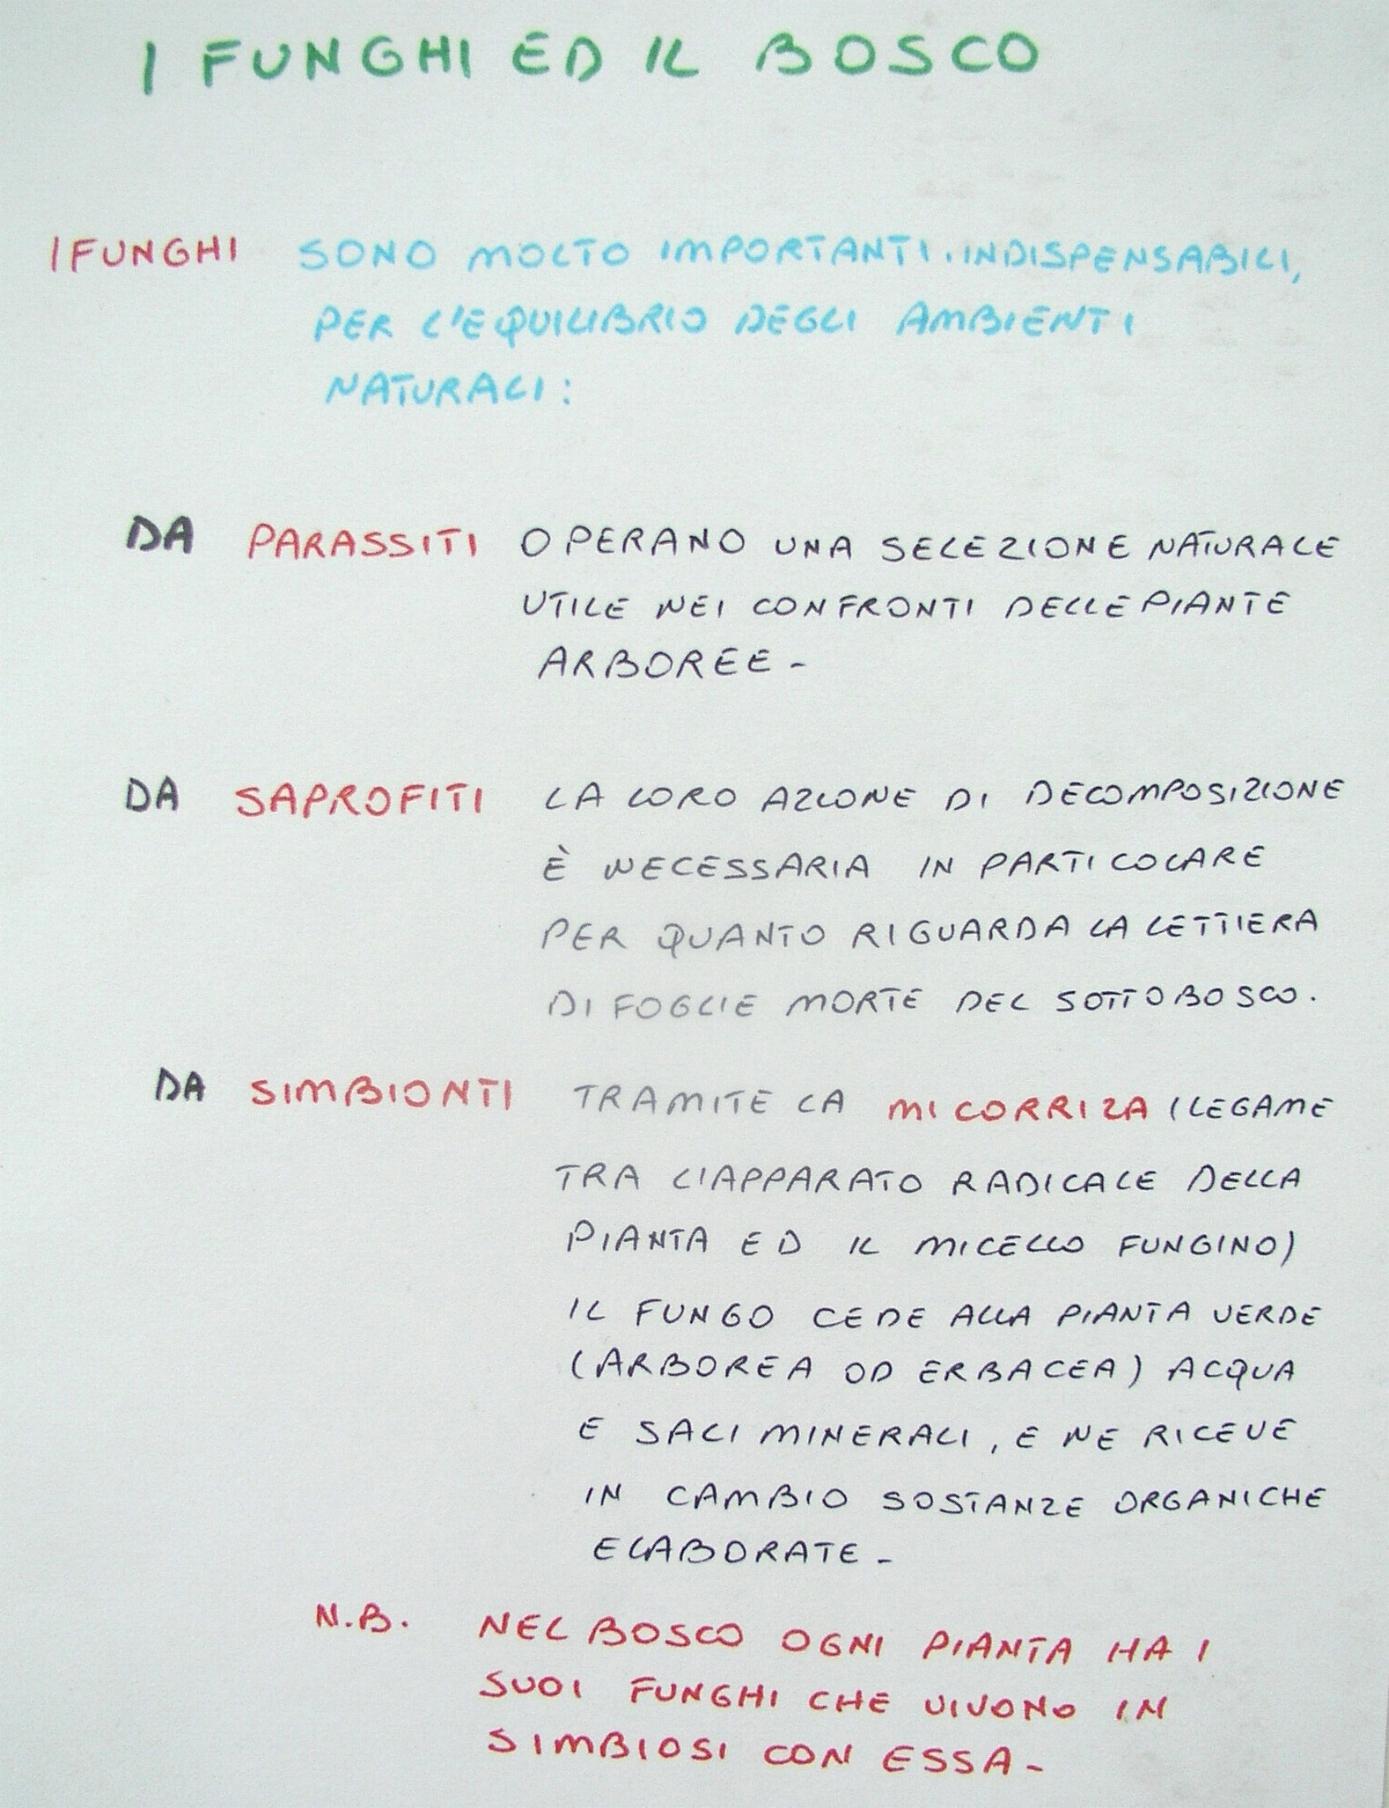 I FUNGHI ED IL BOSCO
I FUNGHI SONO MOLTO IMPORTANTI, INDISPENSABILI,
PER L'EQUILIBRIO DEGLI AMBIENTI
NATURALI:
DA PARASSITI OPERANO UNA SELEZIONE NATURALE
UTILE NEI CONFRONTI DELLE PIANTE
ARBOREE -
DA SAPROFITI LA LORO AZIONE DI DECOMPOSIZIONE
È NECESSARIA IN PARTICOLARE
PER QUANTO RIGUARDA LA LETTIERA
DI FOGLIE MORTE DEL SOTTOBOSCO.
DA SIMBIONTI TRAMITE LA MICORRIZA (LEGAME
TRA L'APPARATO RADICALE DELLA
PIANTA ED IL MICELLO FUNGINO)
IL FUNGO CEDE ALLA PIANTA VERDE
(ARBOREA OD ERBACEA) ACQUA
E SALI MINERALI, E NE RICEVE
IN CAMBIO SOSTANZE ORGANICHE
ELABORATE -
N.B. NEL BOSCO OGNI PIANTA HA I
SUOI FUNGHI CHE VIVONO IN
SIMBIOSI CON ESSA -